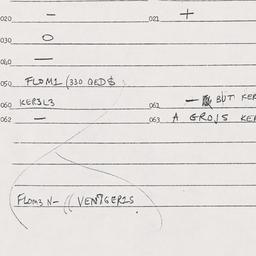 020 — 021 +
030 O
040 —
050 FLOM1 (330 QED$
060 KER3L3 061 — BUT KER
062 — 063 A GROJS KE
FLOM3 N- (( VENTGER2S